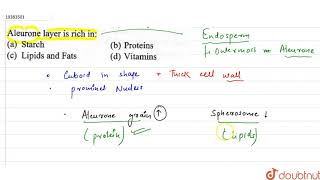 10383501
Aleurone layer is rich in:
(a) Starch (b) Proteins
(c) Lipids and Fats (d) Vitamins
Endosperm
Outermost = Aleurone
• Cuboid in shape + Thick cell wall
• prominent Nucleus
Aleurone grain ↑ Spherosome ↓
(protein) (Lipids)
doubtnut